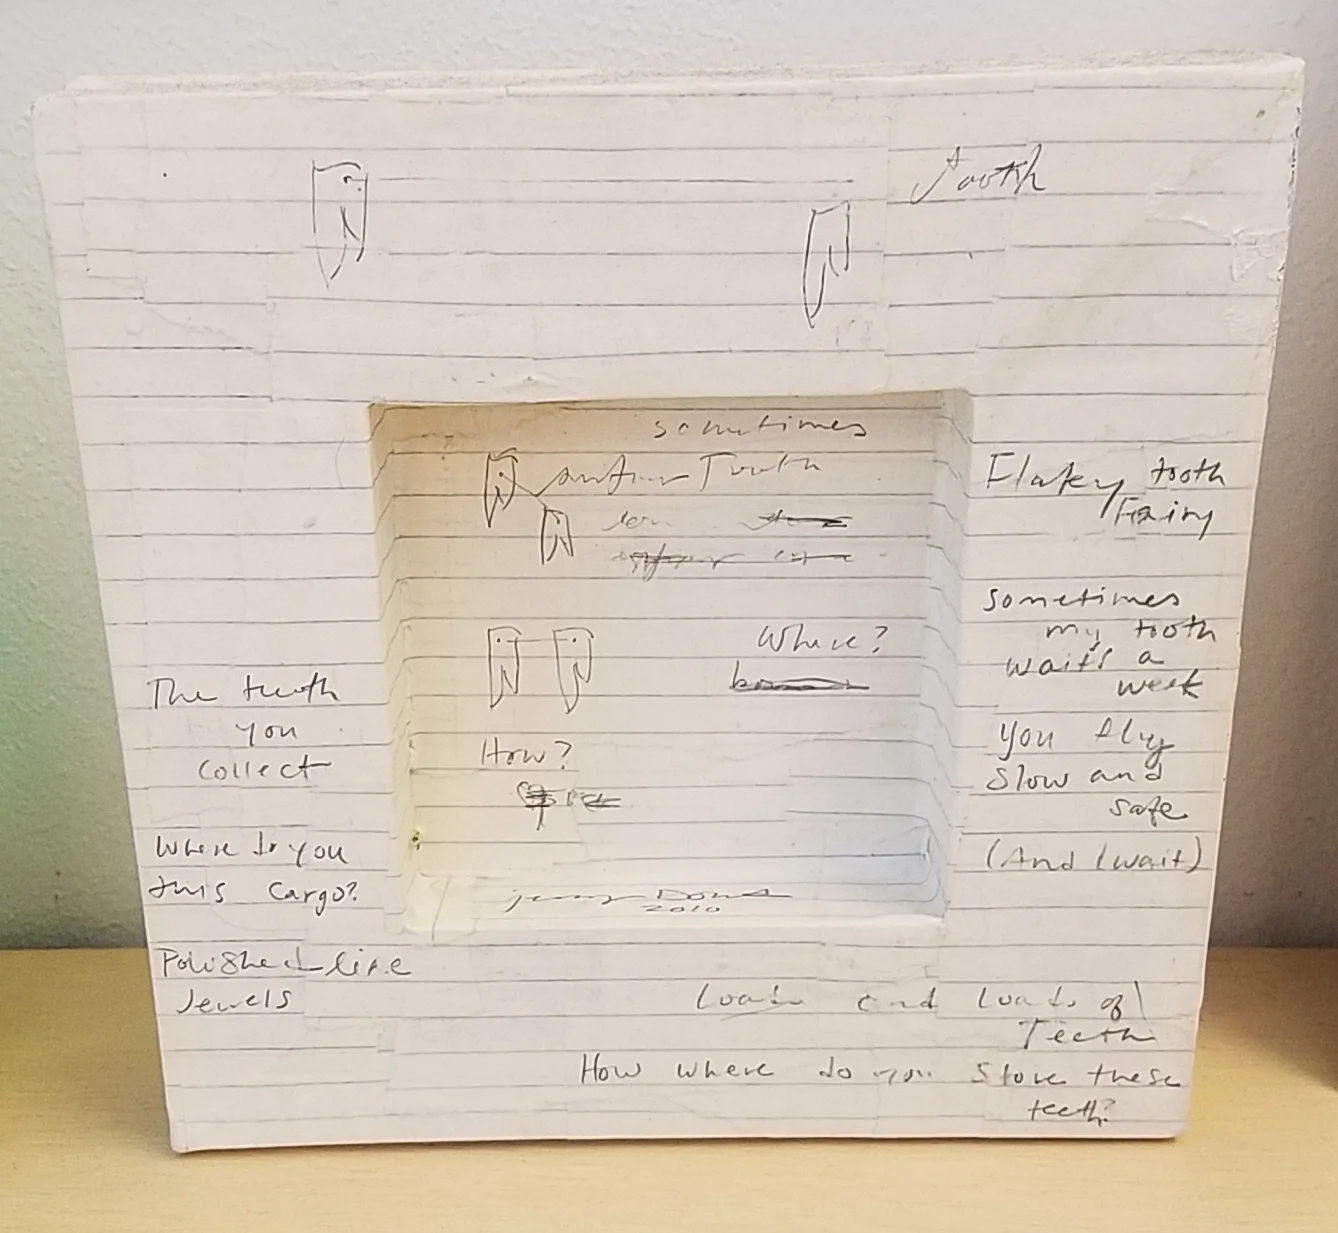 Tooth
sometimes
Tooth
Where?
How?
2010
Flakey tooth
Fairy
Sometimes
my tooth
waits a
week
You fly
slow and
safe
(And I wait)
The teeth
you
collect
Where do you
this cargo?
Polished like
Jewels
Loads and loads of
Teeth
How where do you store these
teeth?